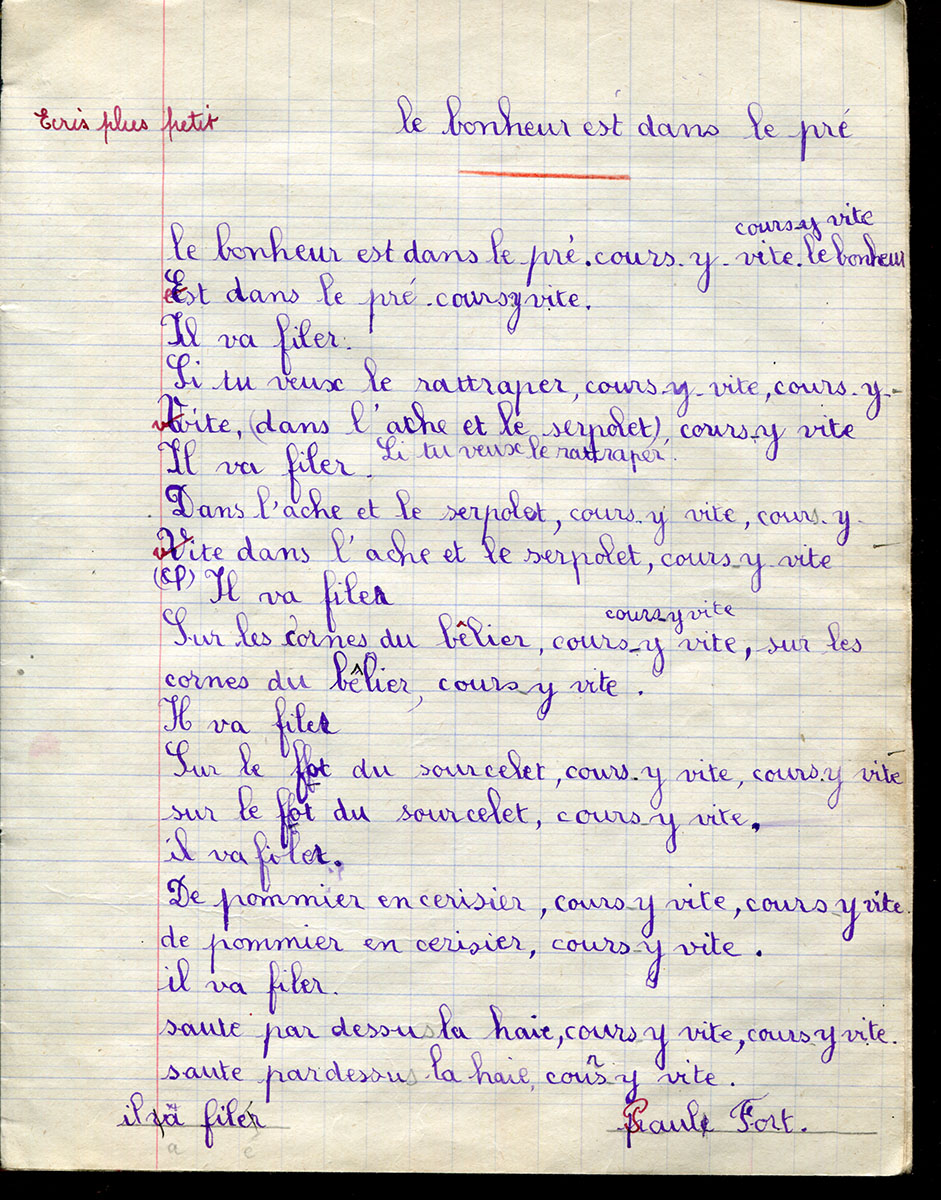 Ecris plus petit
le bonheur est dans le pré
cours-y vite
le bonheur est dans le pré. cours-y-vite. le bonheur
Est dans le pré. coursyvite.
Il va filer.
Si tu veux le rattraper, cours-y-vite, cours-y-
Vite, (dans l'ache et le serpolet), cours-y vite
Il va filer. Si tu veux le rattraper.
Dans l'ache et le serpolet, cours-y vite, cours-y-
Vite dans l'ache et le serpolet, cours-y vite
Il va filer
coursyvite
Sur les cornes du bêlier, cours-y vite, sur les
cornes du bêlier, cours-y vite.
Il va filer
Sur le flot du sourcelet, cours-y vite, cours-y vite
sur le flot du sourcelet, cours-y vite.
il va filer.
De pommier en cerisier, cours-y vite, cours y vite.
de pommier en cerisier, cours-y vite.
il va filer.
saute par dessus la haie, cours y vite, cours y vite.
saute pardessus la haie, cours y vite.
il va filer
Paul Fort.